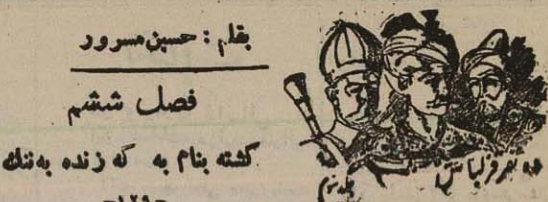 بقلم : حسین مسرور
فصل ششم
کشته بنام به که زنده به ننگ
-۱۲۹-
ده نفر قزلباش
جلد سوم